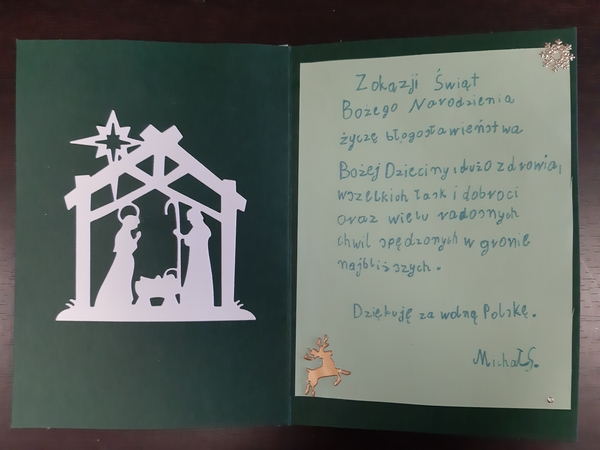 Z okazji Świąt
Bożego Narodzenia
życzę błogosławieństwa
Bożej Dzieciny, dużo zdrowia,
wszelkich łask i dobroci
oraz wielu radosnych
chwil spędzonych w gronie
najbliższych.
Dziękuję za wolną Polskę.
Michał S.